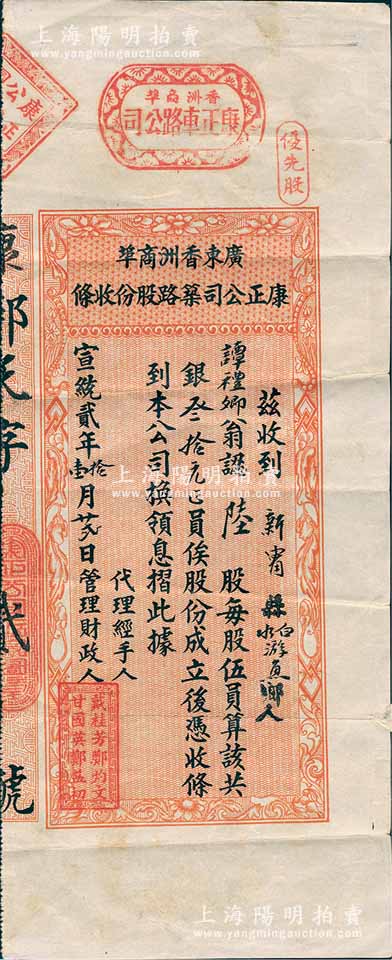 上海陽明拍賣
www.yangmingauction.com
香洲商埠
康正車路公司
優先股
廣東香洲商埠
康正公司築路股份收條
茲收到 新甯縣
鄉人
譚禮卿翁認陸股每股伍員算該共
銀叁拾元〇員俟股份成立後憑收條
到本公司換領息摺此據
代理經手人
宣統貳年拾壹月廿 日管理財政人
戴桂芳鄭灼文
甘國英鄭
號
上海陽明拍賣
www.yangmingauction.com
上海陽明拍賣
www.yangmingauction.com